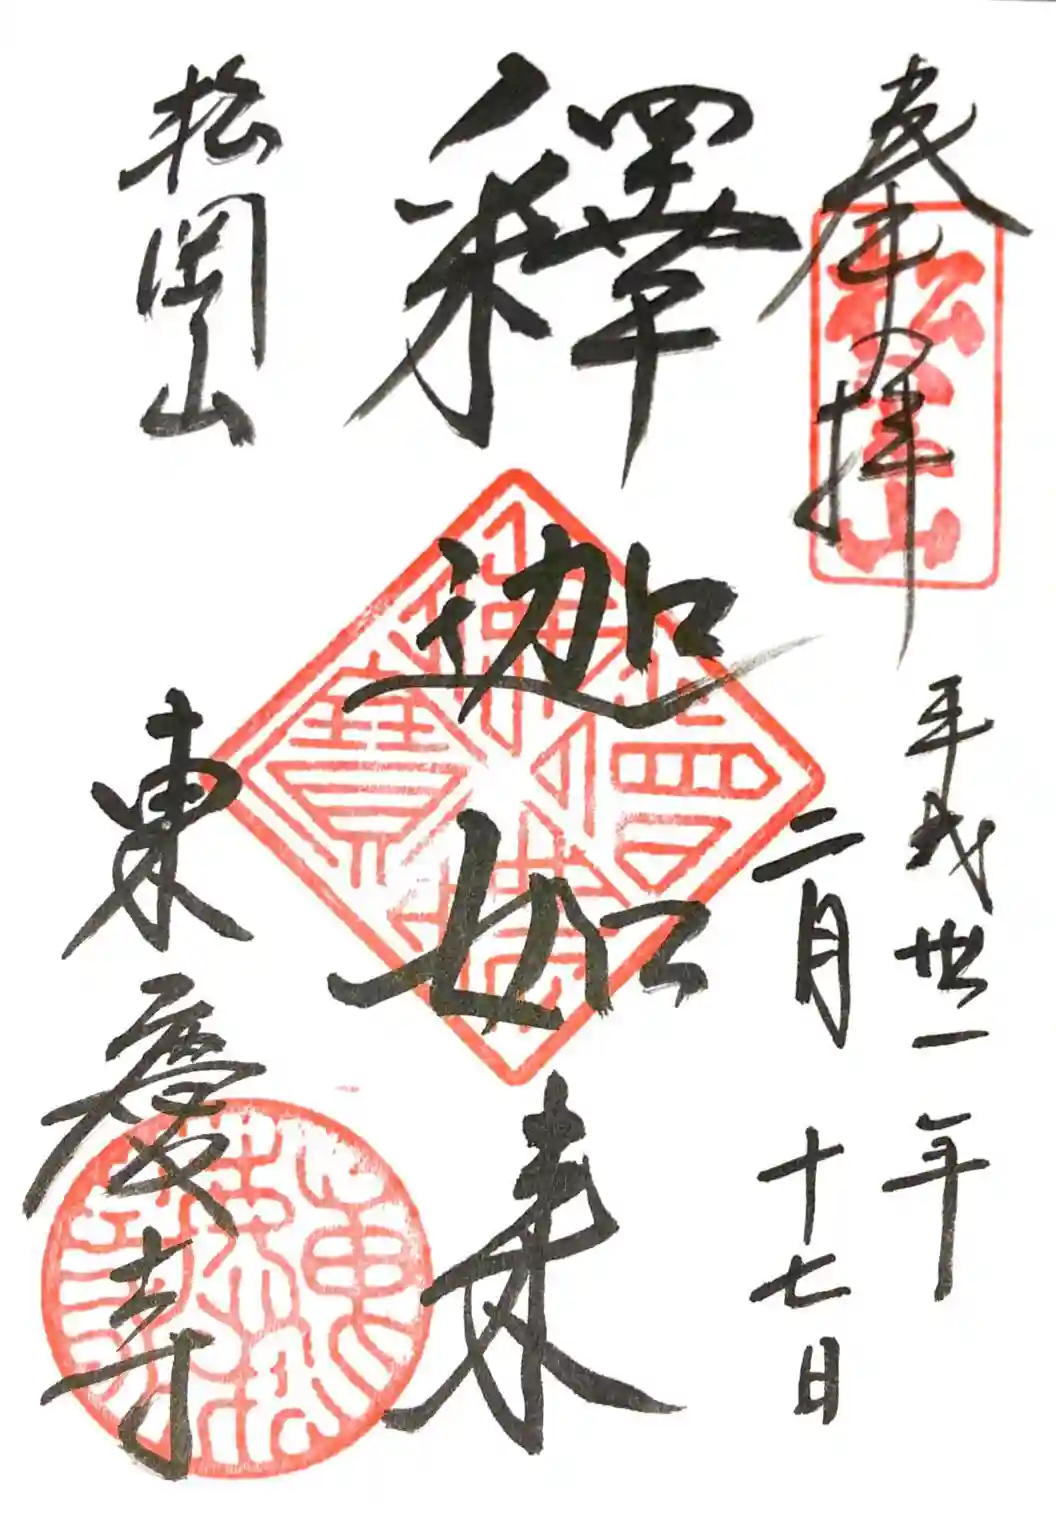 奉拝
松岡山
平成卅一年
二月十七日
釋迦如来
松岡山
東慶寺